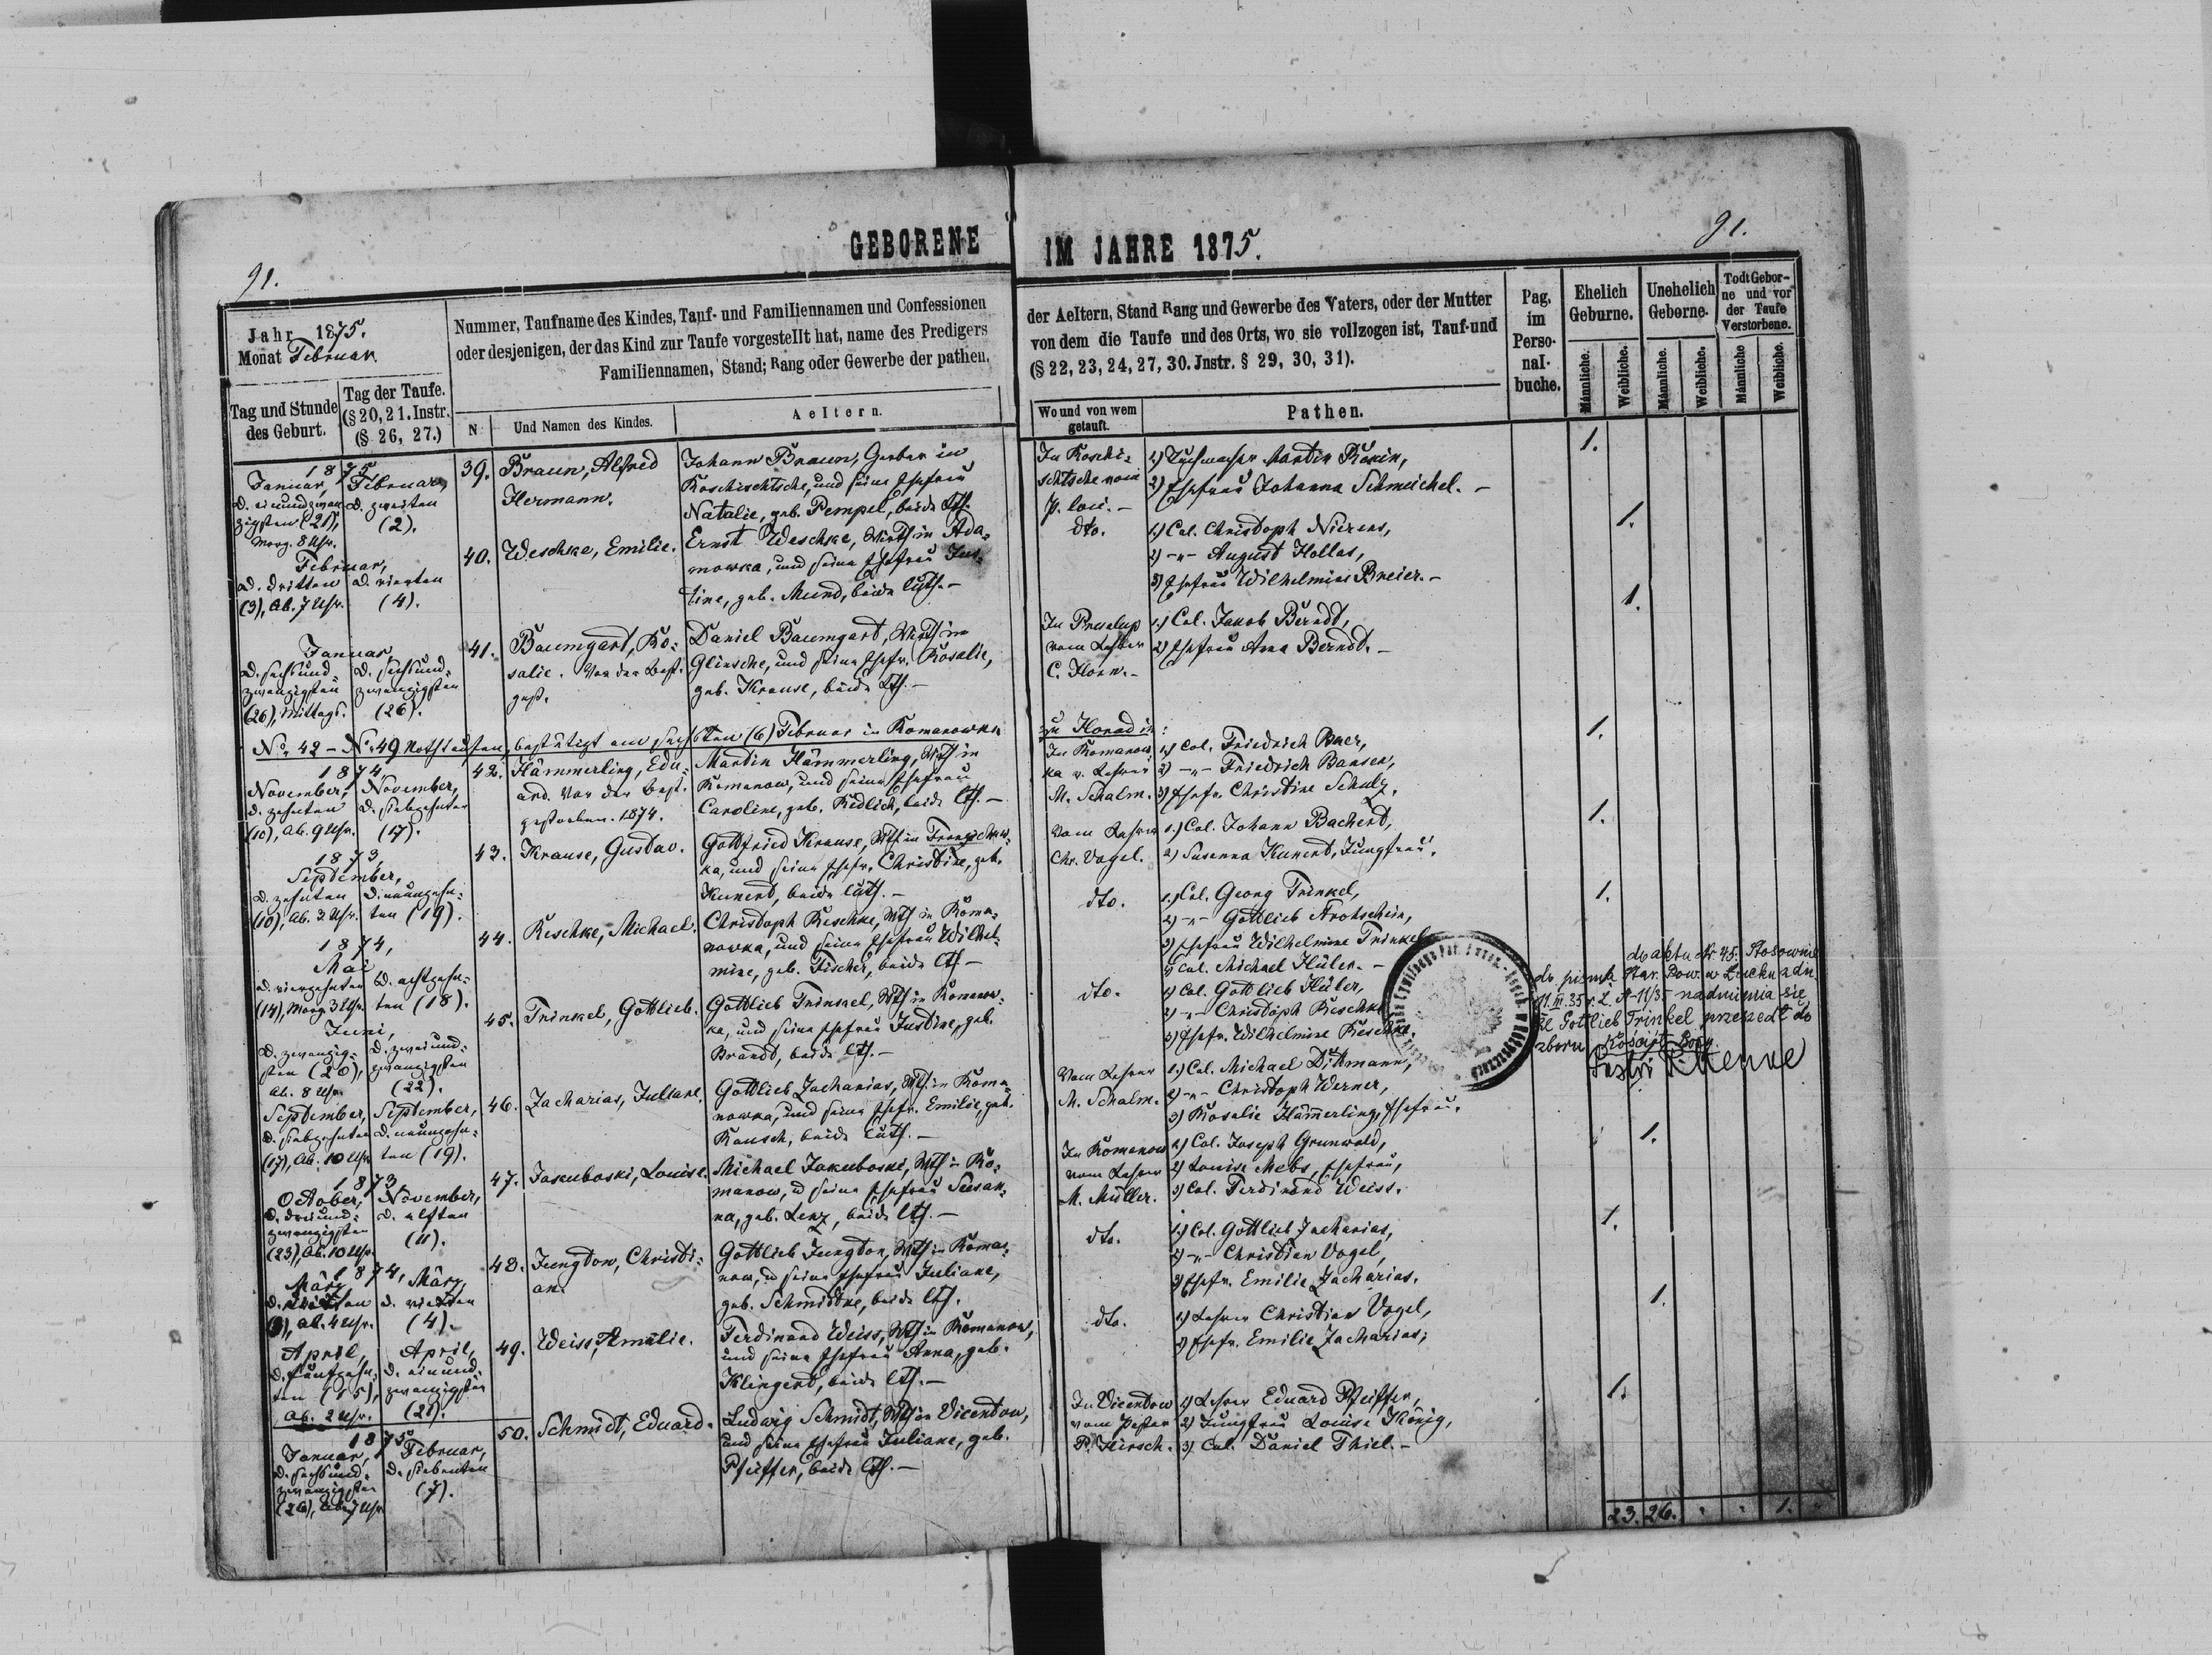 GEBORENE
91.
Jahr 1875.
Monat Februar
Nummer, Taufname des Kindes, Tauf- und Familiennamen und Confessionen
oder desjenigen, der das Kind zur Taufe vorgestellt hat, name des Predigers
Familiennamen, Stand; Rang oder Gewerbe der pathen.
Tag und Stunde
des Geburt.
Tag der Taufe.
(§ 20, 21. Instr.
(§ 26, 27.)
N
Und Namen des Kindes.
Aeltern.
1875
Januar, Februar,
d. einundzwan- d. zweiten
zigsten (21), (2).
Morg. 8 Uhr.
39. Braun, Alfred
Hermann.
Johann Braun, Gerber in
Roschischtsche, und seine Ehefrau
Natalie, geb. Pempel, beide lth.
Februar,
d. dritten d. vierten
(3), Ab. 7 Uhr. (4).
40. Weschke, Emilie.
Ernst Weschke, Wirth in Ada-
mowka, und seine Ehefrau Jus-
tine, geb. Mund, beide luth. –
Januar,
d. sechsund- d. sechsund-
zwanzigsten zwanzigsten
(26), Mittags. (26).
41. Baumgart, Ro-
salie. Vor der Best.
gest.
Daniel Baumgart, Wirth in
Glinsche, und seine Ehefr. Rosalie,
geb. Krause, beide lth. –
No. 42 – No. 49 Nothtaufen, bestätigt am sechsten (6) Februar in Romanowka
1874,
November, November,
d. zehnten d. siebzehnten
(10), Ab. 9 Uhr. (17).
42. Hämmerling, Edu-
ard. Vor der Best.
gestorben. 1874.
Martin Hämmerling, Wth in
Romanow, und seine Ehefrau
Caroline, geb. Redlich, beide lth. –
1873,
September,
d. zehnten d. neunzehn-
(10), Ab. 3 Uhr. ten (19).
43. Krause, Gustav.
Gottfried Krause, Wth in
ka, und seine Ehefr. Christine, geb.
Kunert, beide luth. –
1874,
Mai
d. vierzehnten d. achtzehn-
(14), Morg 3 Uhr. ten (18).
44. Reschke, Michael.
Christoph Reschke, Wth in Roma-
nowka, und seine Ehefrau Wilhel-
mine, geb. Fischer, beide lth –
Juni,
d. zwanzig- d. zweiund-
sten (20), zwanzigsten
Ab. 8 Uhr. (22).
45. Trinkel, Gottlieb.
Gottlieb Trinkel, Wth in Romanow-
ka, und seine Ehefrau Justine, geb.
Brandt, beide lth. –
September, September,
d. siebzehnten d. neunzehn-
(17), Ab. 10 Uhr ten (19).
46. Zacharias, Juliane.
Gottlieb Zacharias, Wth in Roma-
nowka, und seine Ehefr. Emilie, geb.
Rausch, beide luth. –
1873,
October, November,
d. dreiund- d. elften
zwanzigsten (11).
(23), Ab. 10 Uhr.
47. Jakuboski, Louise.
Michael Jakuboski, Wth in Ro-
manow, u seine Ehefrau Susan-
na, geb. Lenz, beide lth. –
1874,
März, März,
d. dritten d. vierten
(3), Ab. 4 Uhr. (4).
48. Jungton, Christi-
an.
Gottlieb Jungton, Wth in Roma-
now, u seine Ehefrau Juliane,
geb. Schmidtke, beide lth.
April, April,
d. fünfzehn- d. einund-
ten (15), zwanzigsten
Ab. 2 Uhr. (21).
49. Weiss, Amalie.
Ferdinand Weiss, Wth in Romanow,
und seine Ehefrau Anna, geb.
Klingert, beide lth. –
1875
Januar, Februar,
d. sechsund- d. siebenten
zwanzigsten (7).
(26), Ab. 7 Uhr
50. Schmidt, Eduard.
Ludwig Schmidt, Wth in Vicentow,
und seine Ehefrau Juliane, geb.
Pfeiffer, beide lth. –
91.
IM JAHRE 1875.
der Aeltern, Stand Rang und Gewerbe des Vaters, oder der Mutter
von dem die Taufe und des Orts, wo sie vollzogen ist, Tauf-und
(§ 22, 23, 24, 27, 30. Jnstr. § 29, 30, 31).
Wo und von wem
getauft.
Pathen.
Pag.
im
Perso-
nal-
buche.
Ehelich
Geburne.
Unehelich
Geborne.
Todt Gebor-
ne und vor
der Taufe
Verstorbene.
Männliche.
Weibliche.
Männliche.
Weibliche.
Männliche
Weibliche.
In Roschi-
schtsche vom
P. loci. –
1) Tuchmacher Martin
2) Ehefrau Johanna Schmeichel. –
1.
dto.
1.) Col. Christoph Nierens,
2) -"- August Hollas,
3) Ehefrau Wilhelmine Breier. –
1.
In Presalup
vom Lehrer
C. Horn. –
1.) Col. Jakob Berndt,
2) Ehefrau Anna Berndt. –
1.
In Romanow-
ka v. Lehrer
M. Schalm.
1.) Col. Friedrich Baer,
2) -"- Friedrich Banser,
3) Ehefr. Christine Schulz.
1.
Vom Lehrer
Chr. Vogel.
1.) Col. Johann Bachert,
2) Susanna Kunert, Jungfrau.
1.
dto.
1.) Col. Georg Trinkel,
2) -"- Gottlieb
3) Ehefrau Wilhelmine Trinkel
4) Col. Michael Hüler. –
1.
dto.
1) Col. Gottlieb Hüler,
2) -"- Christoph Reschke
3) Ehefr. Wilhelmine Reschke.
do aktu Nr 45. Stosownie
do pisma Star. Pow. w Łucku z dn.
11. III. 35 r. L. A-11/35 nadmienia się
że Gottlieb Trinkel przeszedł do
zboru
Vom Lehrer
M. Schalm.
1.) Col. Michael Dittmann,
2) -"- Christoph Werner,
3) Rosalie Hämmerling, Ehefrau.
1.
In Romanow
vom Lehrer
M. Müller.
1.) Col. Joseph Grunwald,
2) Louise Mebs, Ehefrau,
3) Col. Ferdinand Weiss.
dto.
1.) Col. Gottlieb Zacharias,
2) -"- Christian Vogel,
3) Ehefr. Emilie Zacharias.
1.
dto.
1.) Lehrer Christian Vogel,
2) Ehefr. Emilie Zacharias,
1.
In Vicentow
vom Pastor
P. Hirsch.
1) Lehrer Eduard Pfeiffer,
2) Jungfrau Louise König,
3) Col. Daniel Thiel. –
1.
23. 26. " " 1. "